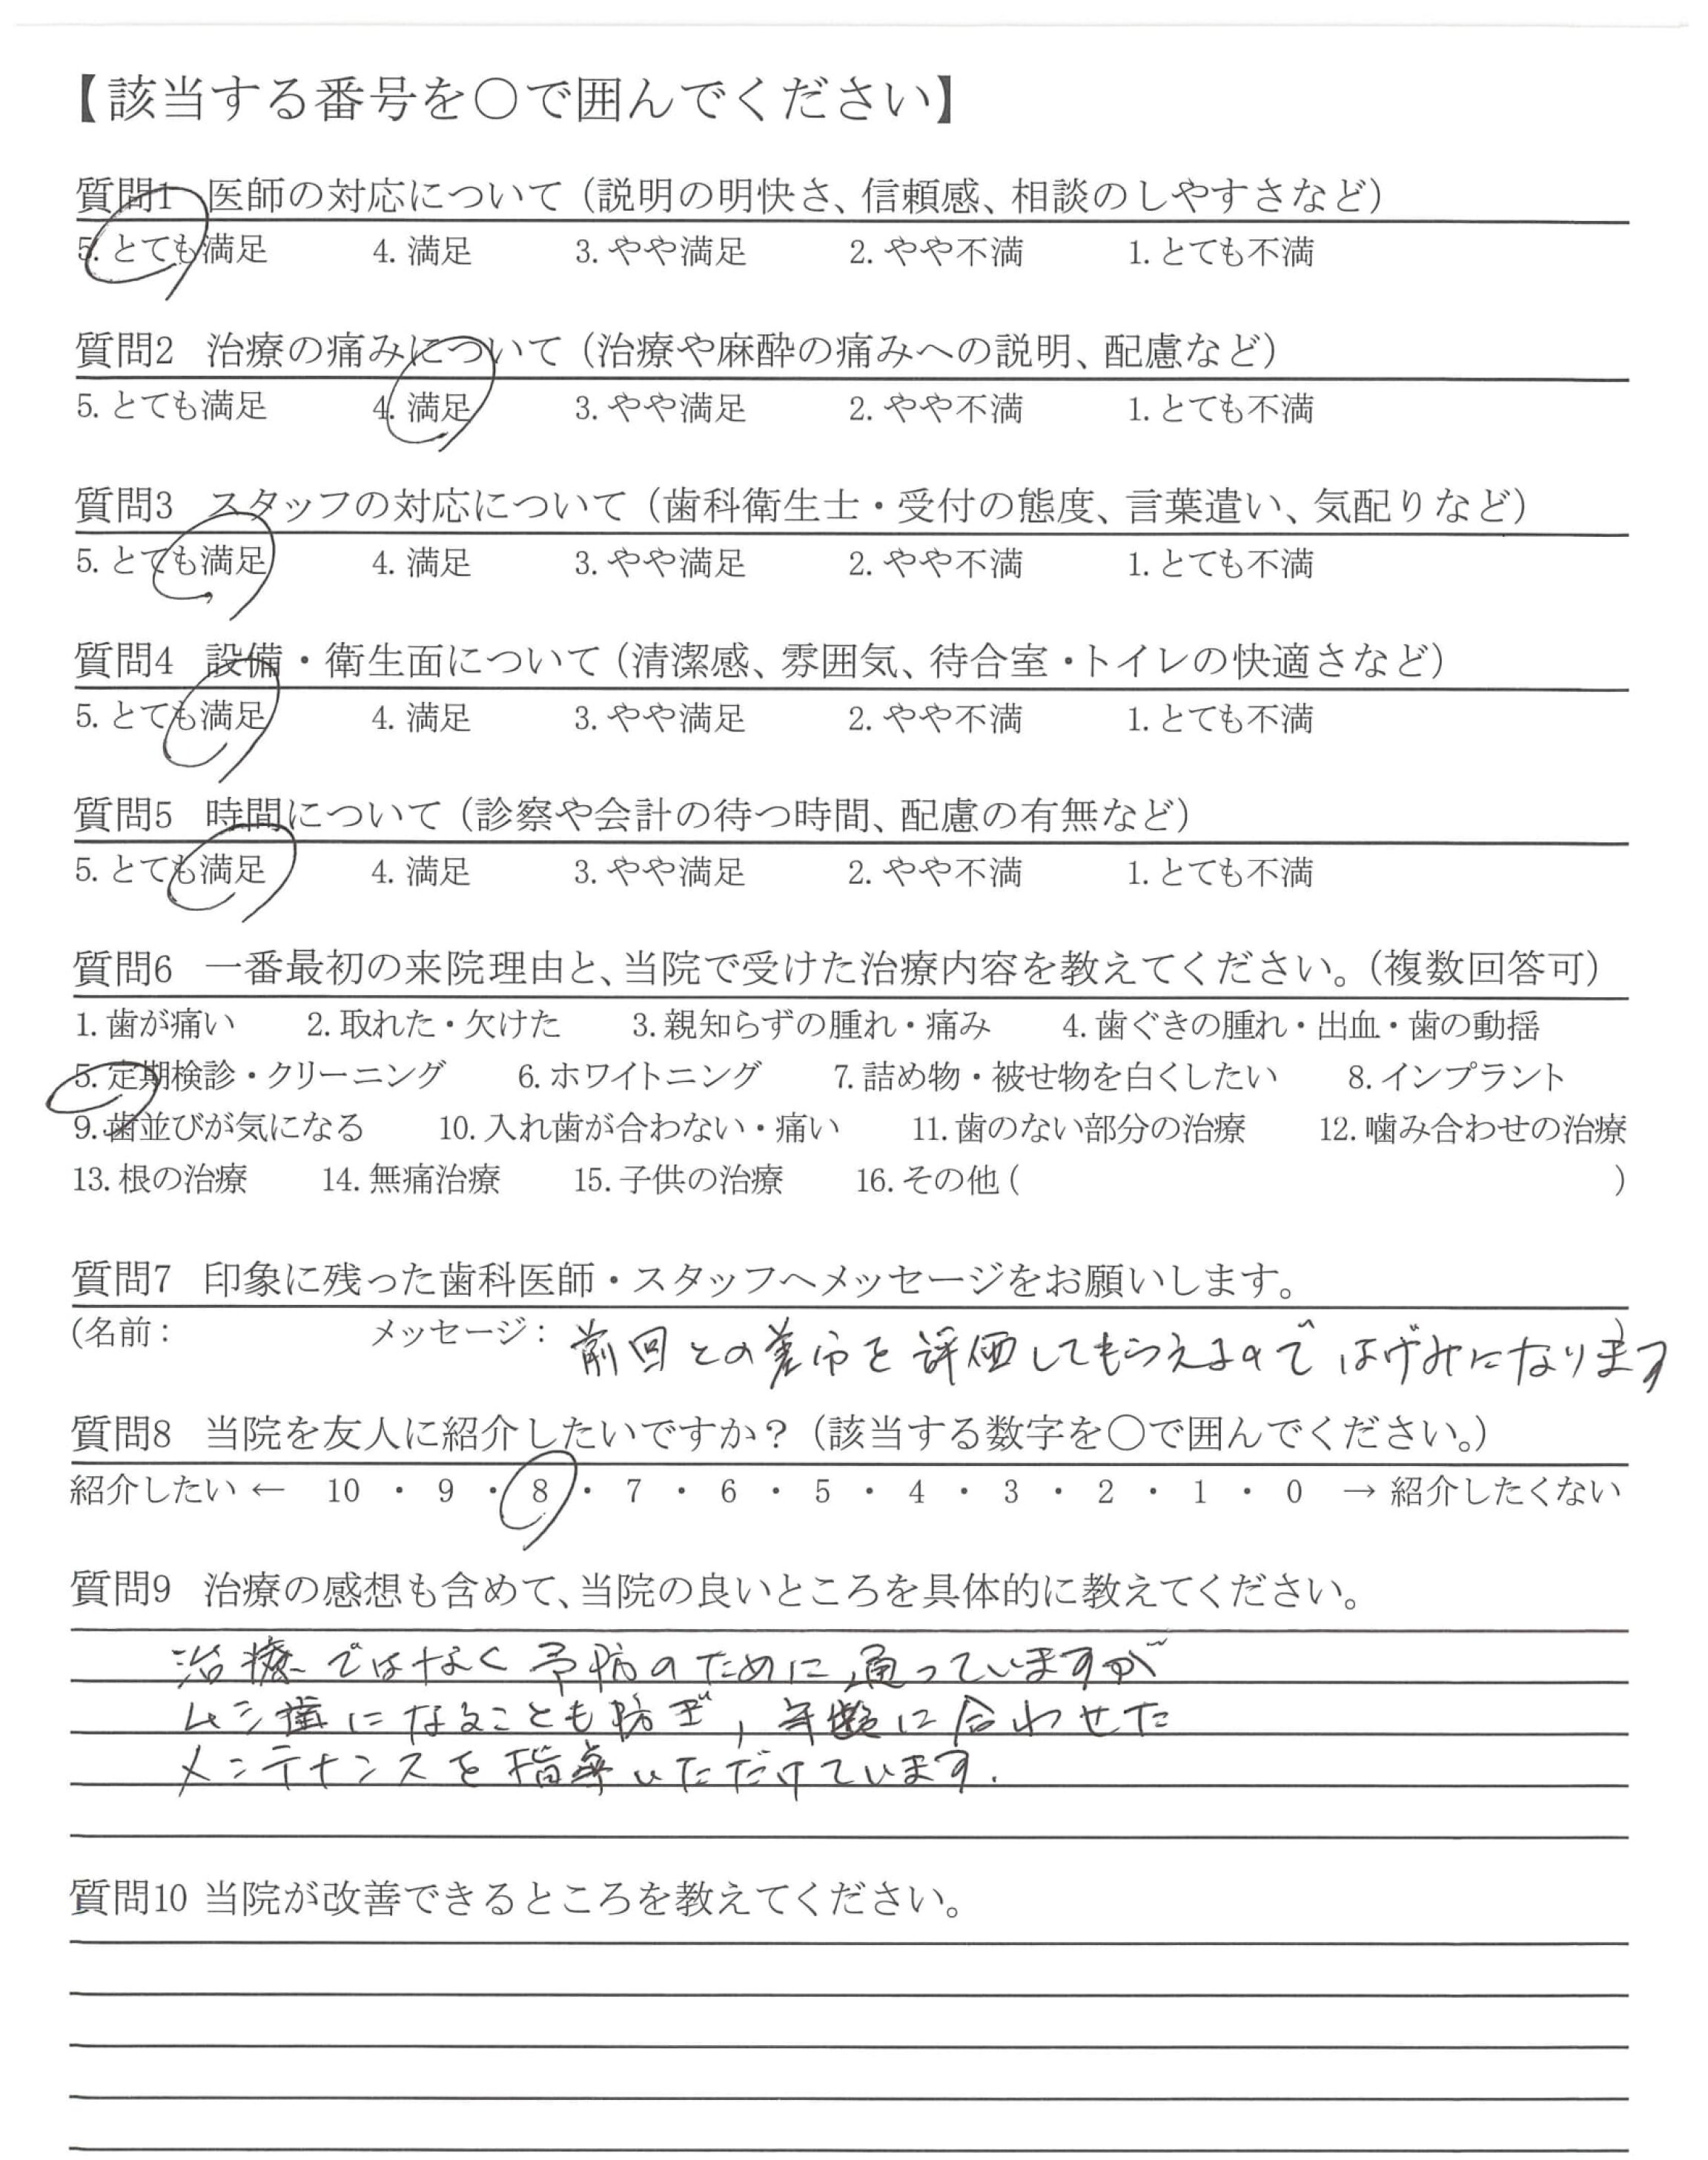 【該当する番号を○で囲んでください】
質問1 医師の対応について（説明の明快さ、信頼感、相談のしやすさなど）
5. とても満足 4. 満足 3. やや満足 2. やや不満 1. とても不満
質問2 治療の痛みについて（治療や麻酔の痛みへの説明、配慮など）
5. とても満足 4. 満足 3. やや満足 2. やや不満 1. とても不満
質問3 スタッフの対応について（歯科衛生士・受付の態度、言葉遣い、気配りなど）
5. とても満足 4. 満足 3. やや満足 2. やや不満 1. とても不満
質問4 設備・衛生面について（清潔感、雰囲気、待合室・トイレの快適さなど）
5. とても満足 4. 満足 3. やや満足 2. やや不満 1. とても不満
質問5 時間について（診察や会計の待つ時間、配慮の有無など）
5. とても満足 4. 満足 3. やや満足 2. やや不満 1. とても不満
質問6 一番最初の来院理由と、当院で受けた治療内容を教えてください。（複数回答可）
1. 歯が痛い 2. 取れた・欠けた 3. 親知らずの腫れ・痛み 4. 歯ぐきの腫れ・出血・歯の動揺
5. 定期検診・クリーニング 6. ホワイトニング 7. 詰め物・被せ物を白くしたい 8. インプラント
9. 歯並びが気になる 10. 入れ歯が合わない・痛い 11. 歯のない部分の治療 12. 噛み合わせの治療
13. 根の治療 14. 無痛治療 15. 子供の治療 16. その他 ( )
質問7 印象に残った歯科医師・スタッフへメッセージをお願いします。
（名前： メッセージ： 前回との差を評価してもらえるので はげみになります）
質問8 当院を友人に紹介したいですか？（該当する数字を○で囲んでください。）
紹介したい ← 10 ・ 9 ・ 8 ・ 7 ・ 6 ・ 5 ・ 4 ・ 3 ・ 2 ・ 1 ・ 0 → 紹介したくない
質問9 治療の感想も含めて、当院の良いところを具体的に教えてください。
治療ではなく予防のために通っていますが
ムシ歯になることも防ぎ，年齢に合わせた
メンテナンスを指導いただけています.
質問10 当院が改善できるところを教えてください。